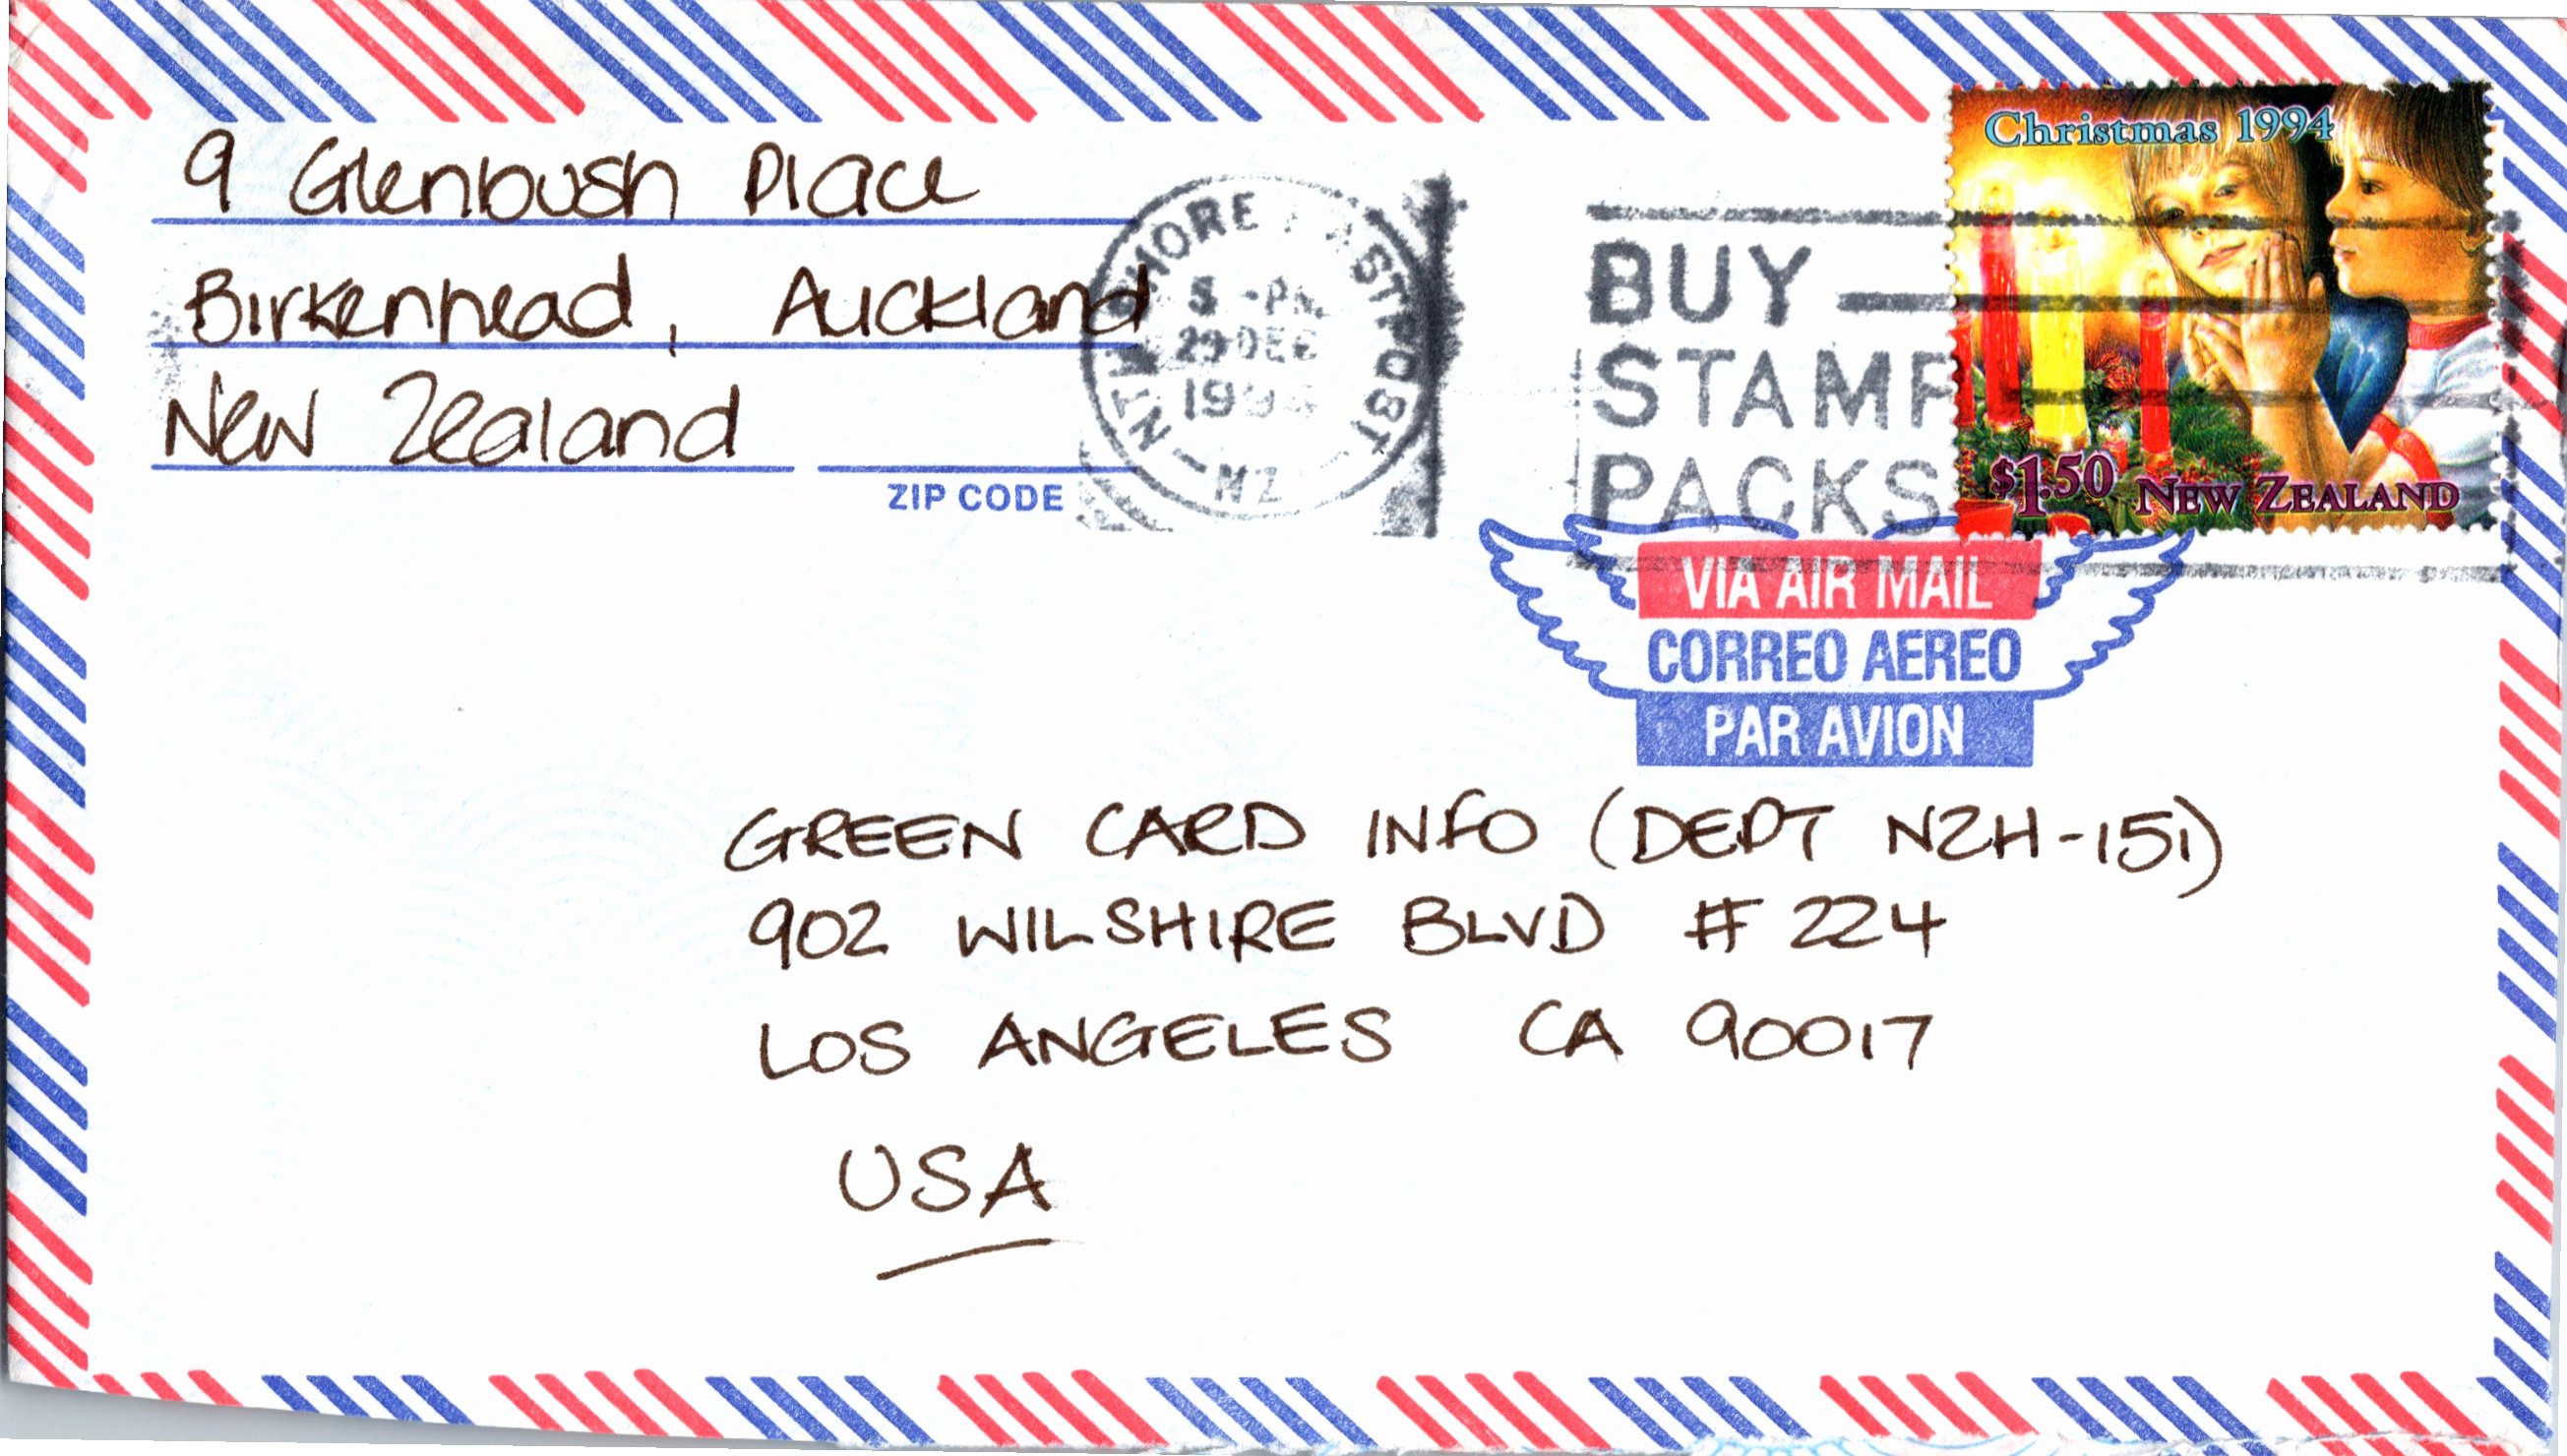 9 Glenbush Place
Birkenhead, Auckland
New Zealand
ZIP CODE
5 -PM
29 DEC
NZ
BUY
STAMP
PACKS
Christmas 1994
$1.50 NEW ZEALAND
VIA AIR MAIL
CORREO AEREO
PAR AVION
GREEN CARD INFO (DEPT NZH-151)
902 WILSHIRE BLVD # 224
LOS ANGELES CA 90017
USA